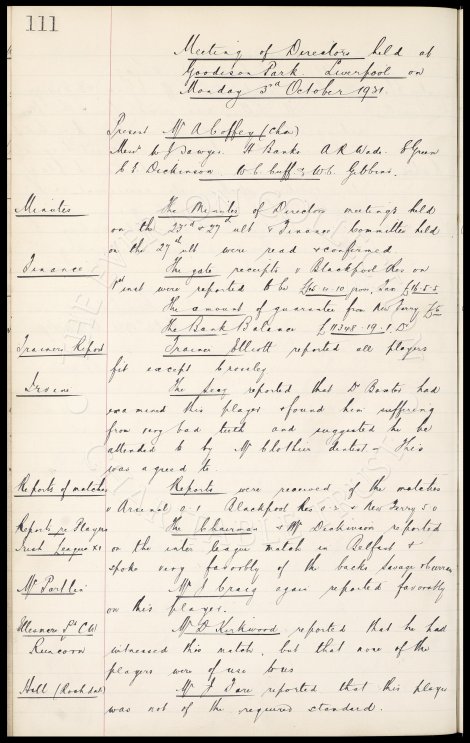 111
Meeting of Directors held at
Goodison Park Liverpool on
Monday 5th October 1931.
Present Mr A Coffey (Chair)
Messrs W J Sawyer. A Banks A R Wade. E Green
E S Dickinson W C Cuff & W C Gibbins.
Minutes The Minutes of Directors meetings held
on the 23rd & 27th ult & Finance Committee held
on the 27th ult were read & confirmed
Finance The gate receipts v Blackpool Res on
1st inst were reported to be
The amount of guarantee from New Ferry £5
The Bank Balance £11348.19.1 Dr
Trainers Report Trainer Elliott reported all players
fit except Cresswell
Irvine The Secy reported that Dr Baxter had
examined this player & found him suffering
from very bad teeth and suggested he be
attended to by Mr Clothier dentist. This
was agreed to.
Reports of matches Reports were received of the matches
v Arsenal 0.1 Blackpool Res 0.2 & New Ferry 5 0
Reports re Players The Chairman & Mr Dickinson reported
Irish League XI on the inter league match in Belfast &
spoke very favorably of the backs
Mr J Craig again reported favorably
on this player.
Ellesmere Pt C v Mr D Kirkwood reported that he had
Runcorn witnessed this match, but that none of the
players were of use to us
Hall (Rochdale) Mr J Dare reported that this player
was not of the required standard.